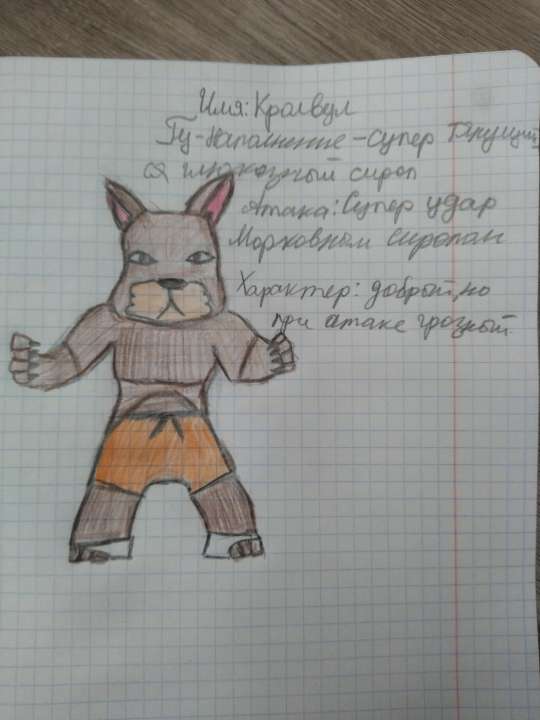 Имя: Кролвул
Гу-Наполнение-Супер Тянущий
ся глюкозный сироп
Атака: Супер удар
Морковным Сиропом
Характер: добрый, но
при атаке грозный